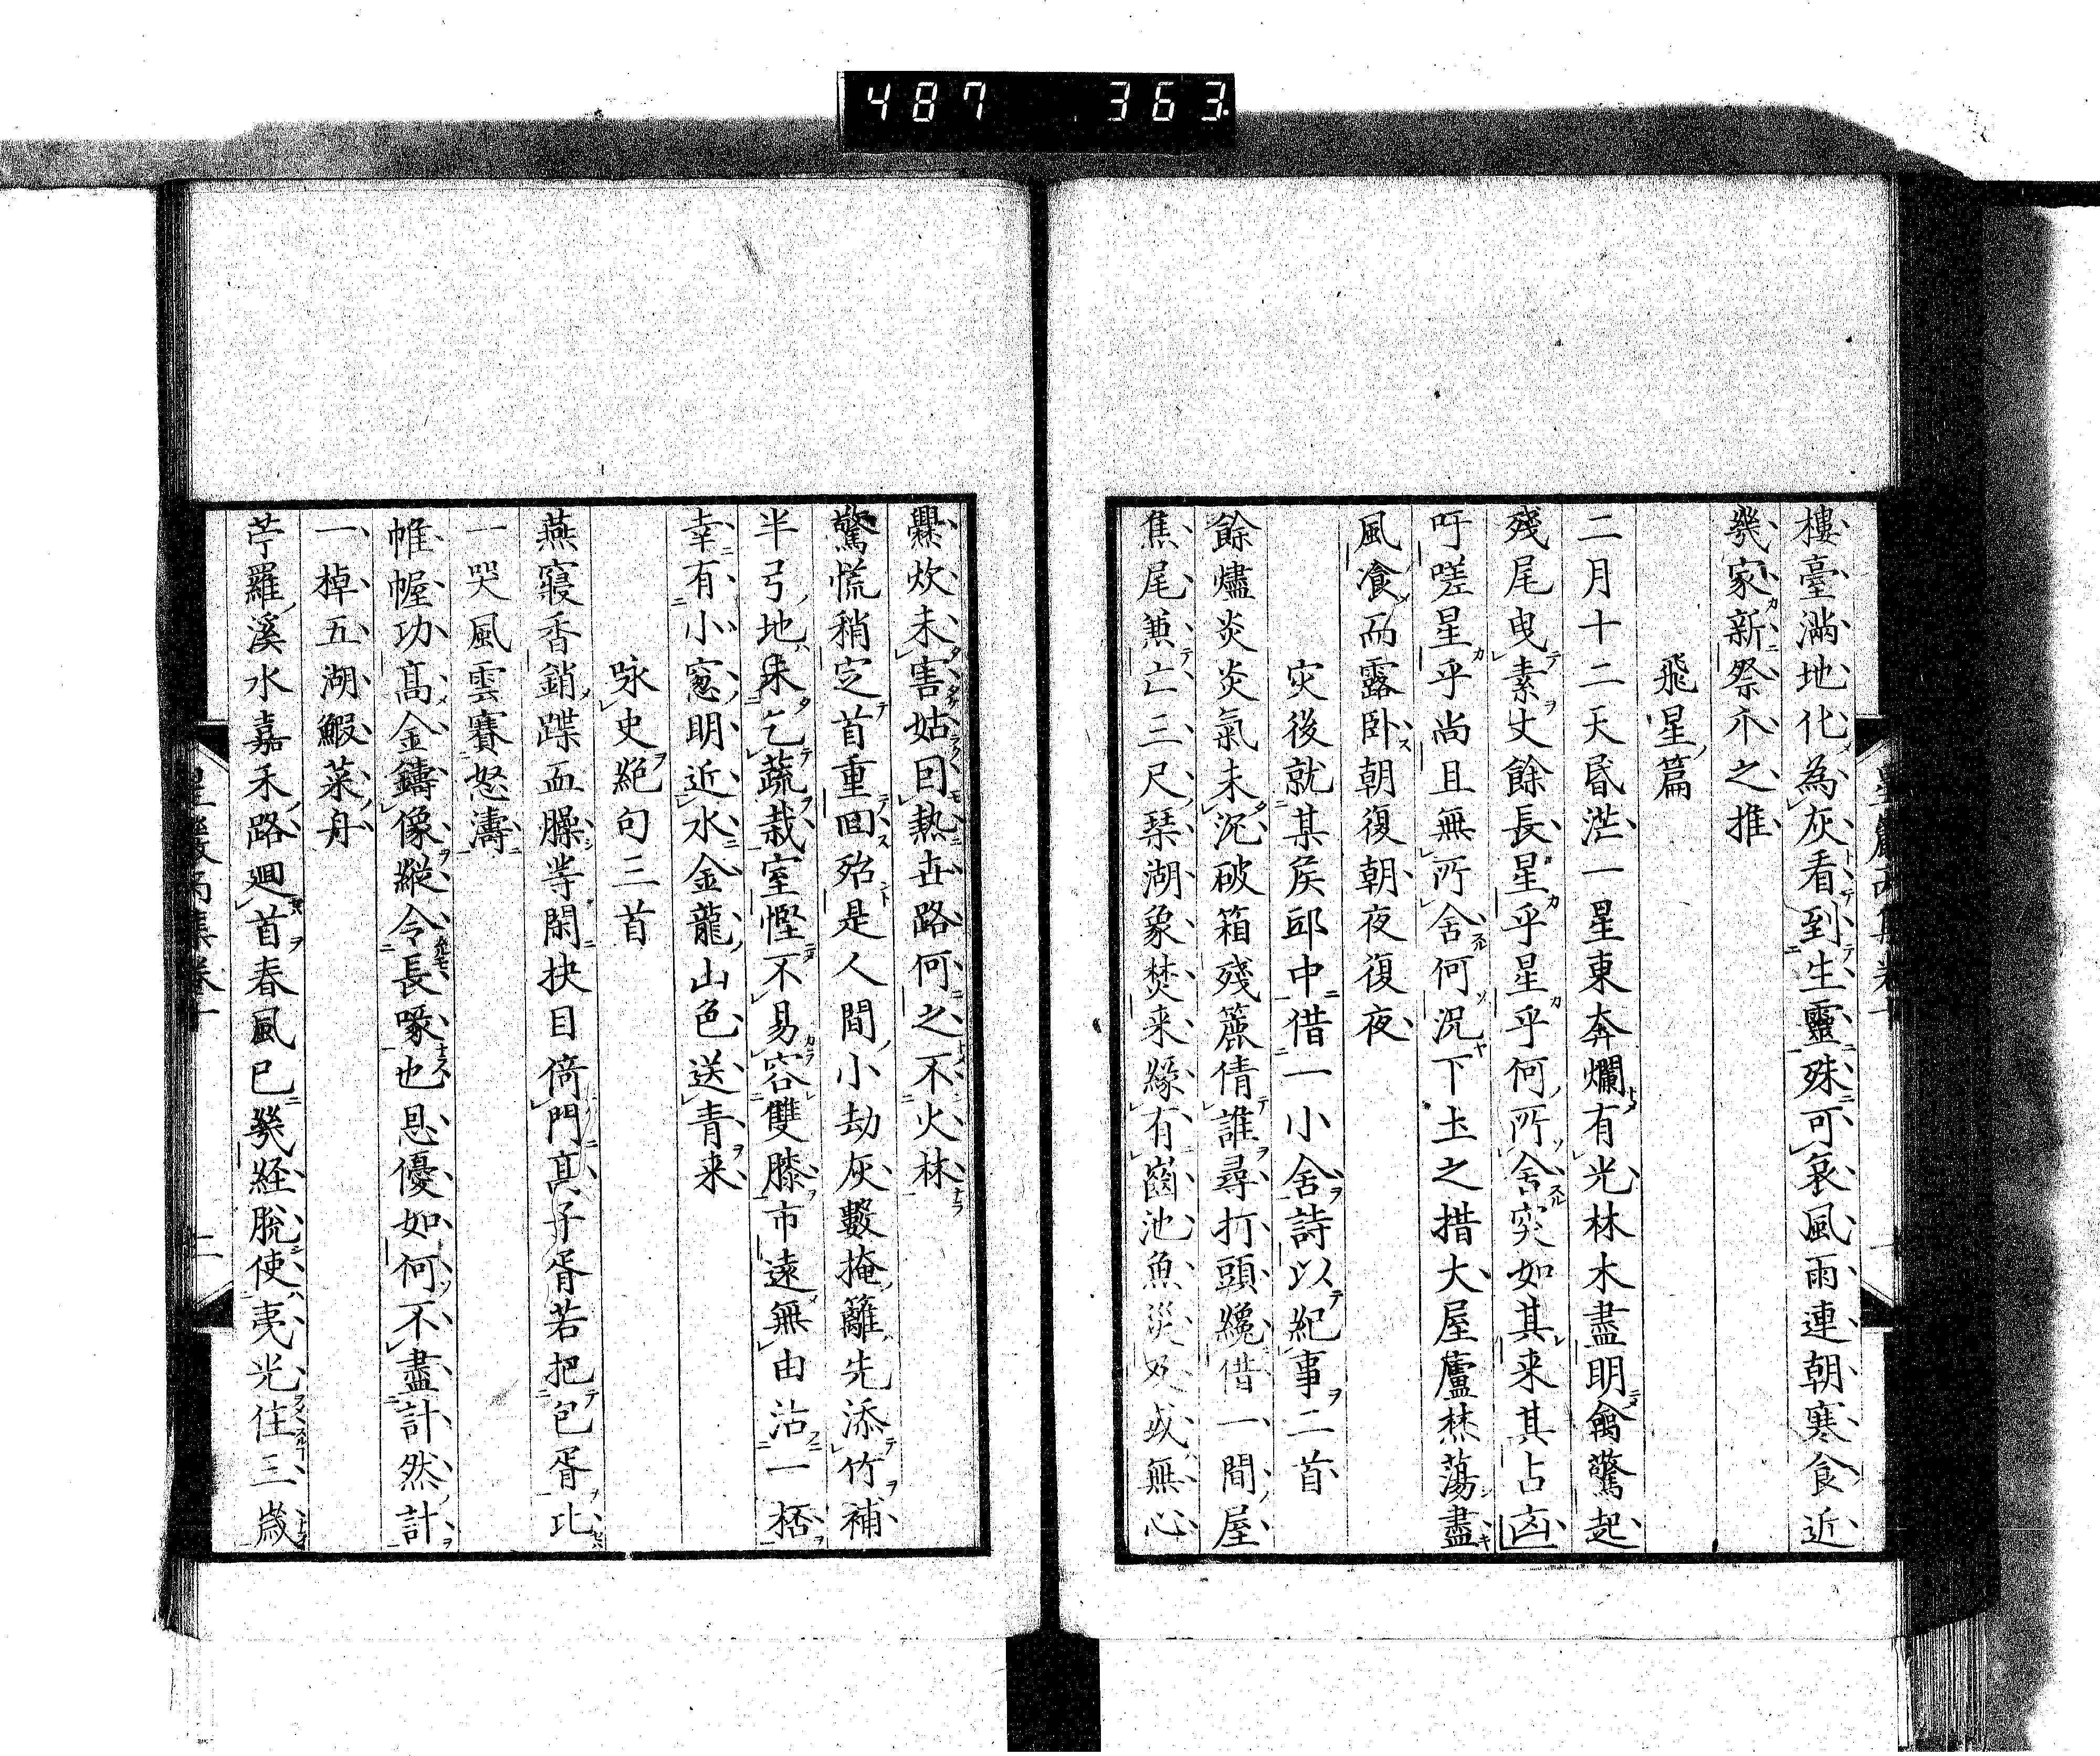 487 363
樓臺滿地化為灰看到生靈殊可哀風雨連朝寒食近
幾家新祭介之推
飛星篇
二月十二天昏浤一星東奔爛有光林木盡明禽驚起
殘尾曳素丈餘長星乎星乎何所舍突如其来其占凶
吁嗟星乎尚且無所舍何況下土之措大屋廬焚蕩盡
風飡而露卧朝復朝夜復夜
灾後就某矦邸中借一小舍詩以紀事二首
餘燼炎炎氣未沉破箱殘簏倩誰尋打頭纔借一間屋
焦尾兼亡三尺琴湖象焚来緣有齒池魚災及或無心
爨炊未害姑因熱世路何之不火林
驚慌稍定首重回殆是人間小劫灰數掩籬先添竹補
半弓地未乞蔬栽室慳不易容雙膝市遠無由沽一桮
幸有小窓明近水金龍山色送青来
咏史絕句三首
燕寢香銷蹀血臊等閑抉目倚門高子胥若把包胥比
一哭風雲賽怒濤
帷幄功高金鑄像縱令長喙也恩優如何不盡計然計
一棹五湖鰕菜舟
苧羅溪水嘉禾路廻首春風已幾経脫使夷光住三歲
星巖丙集卷十 二